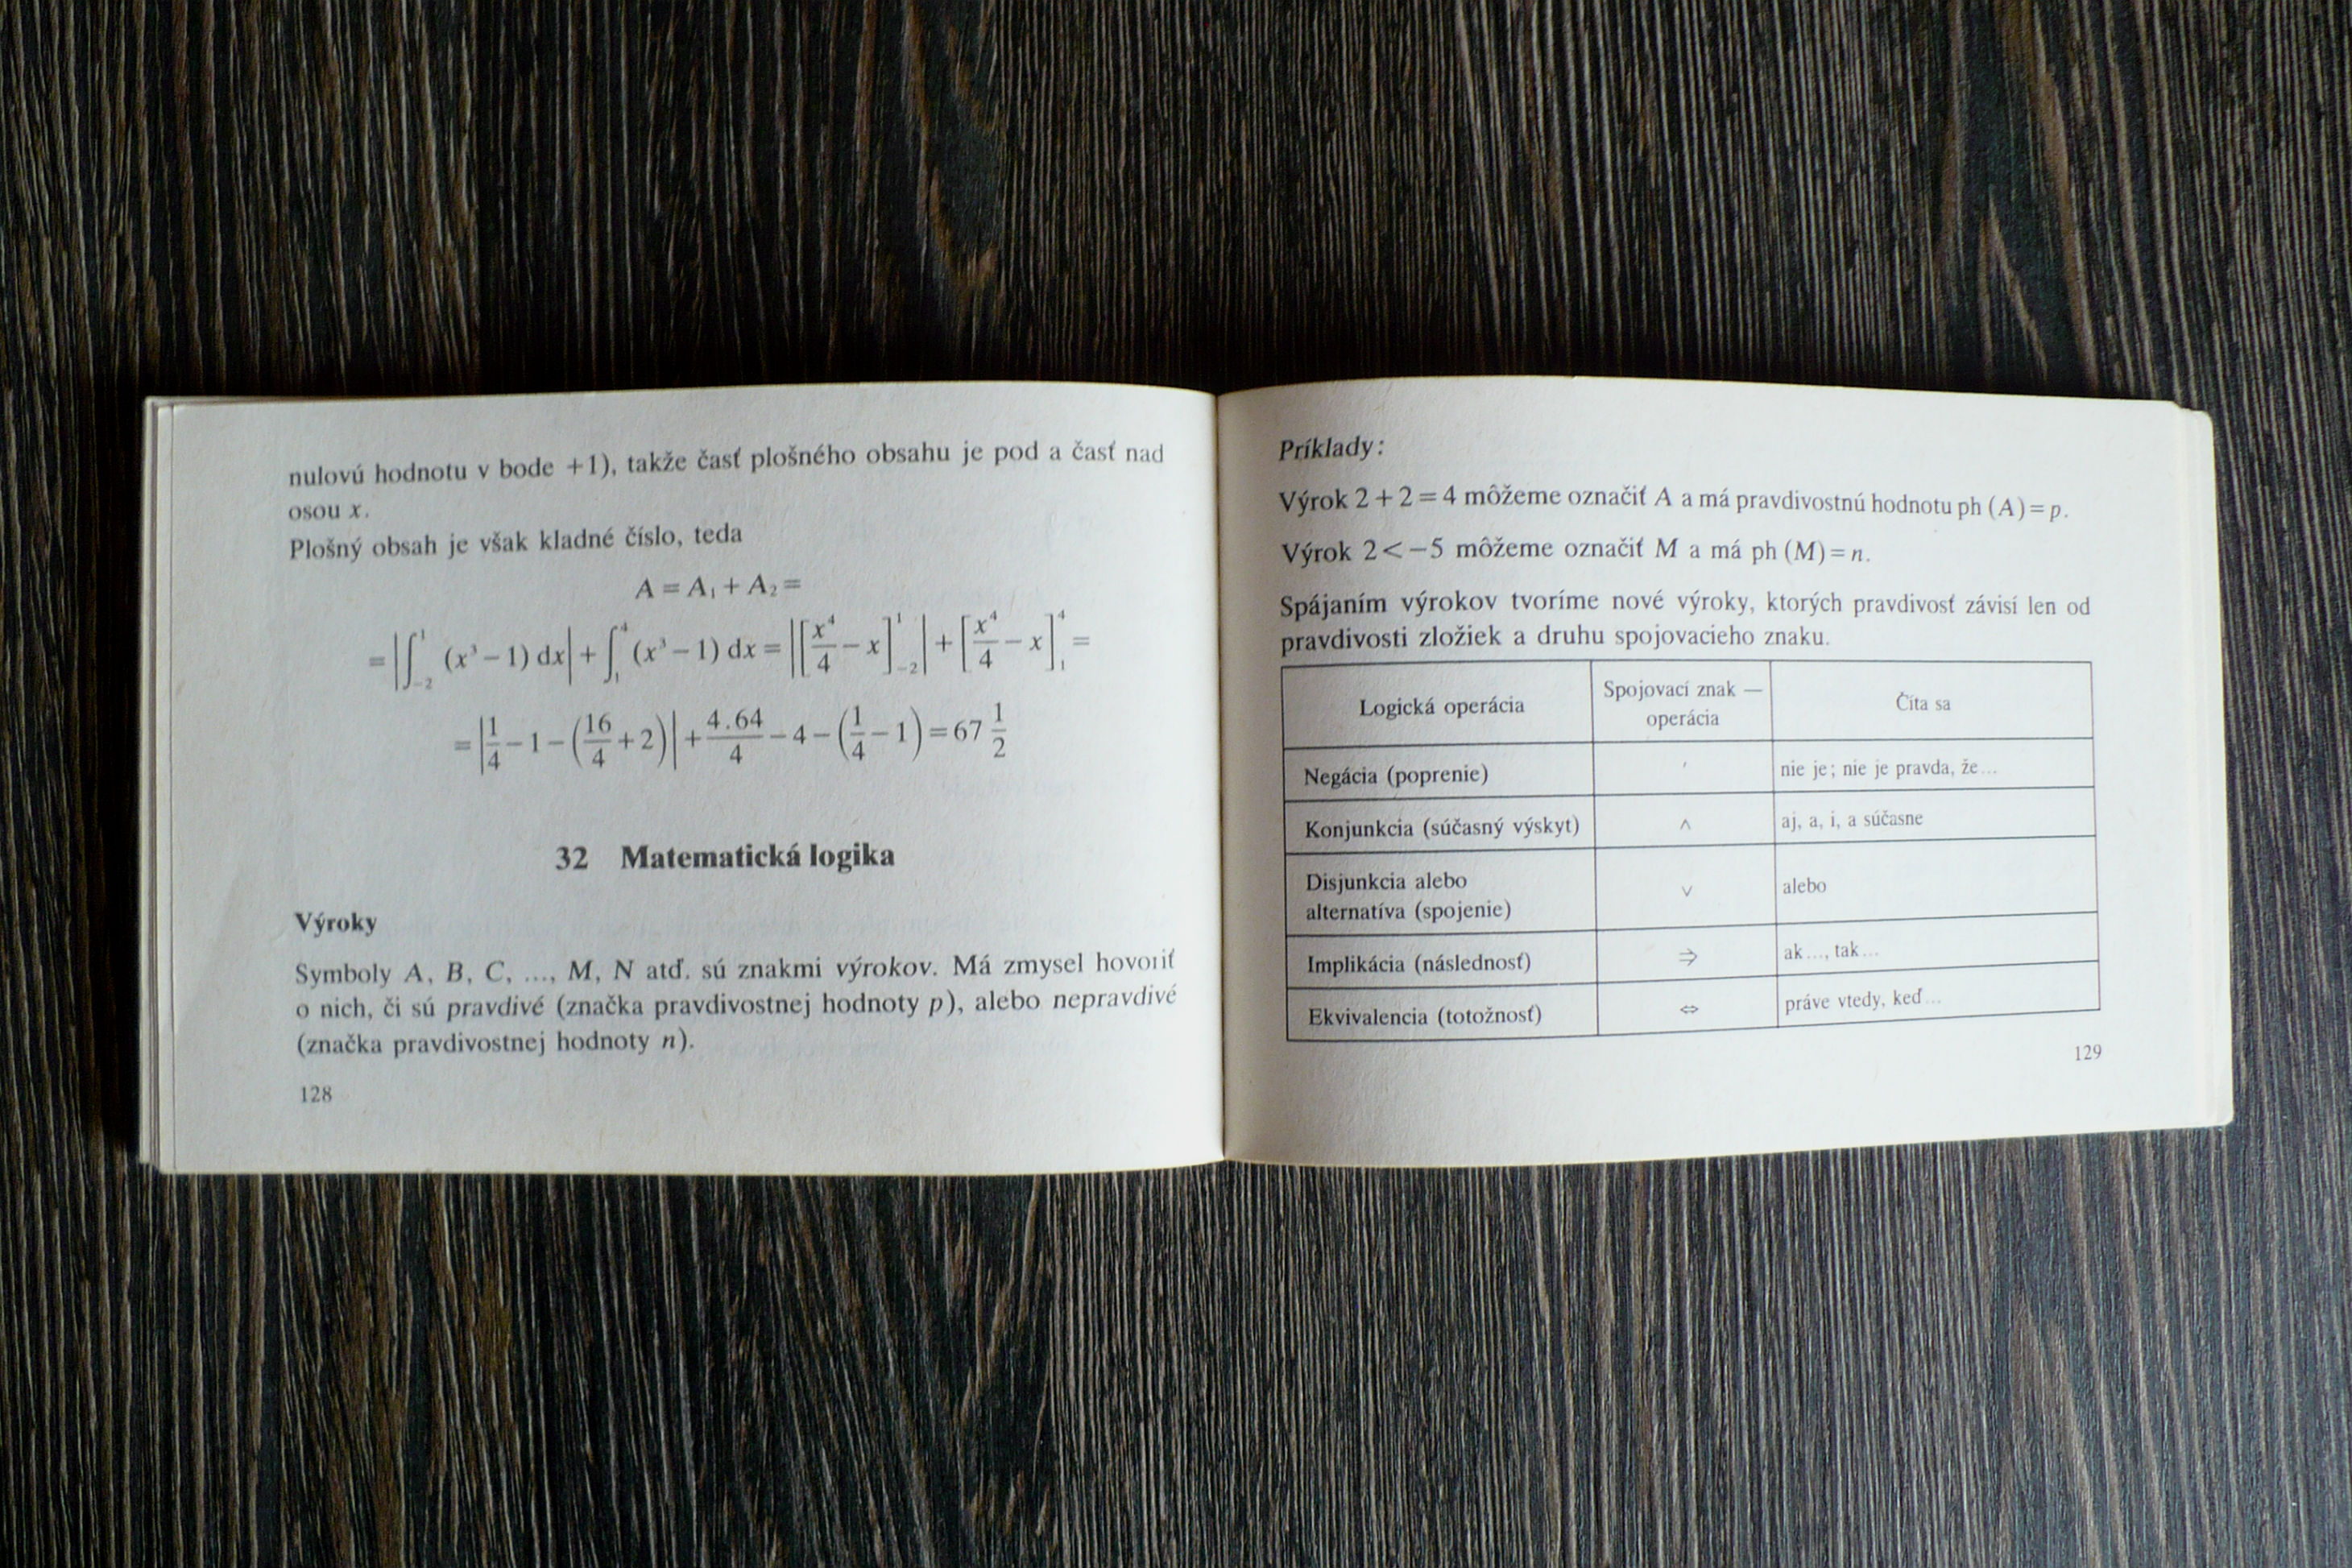 nulovú hodnotu v bode +1), takže časť plošného obsahu je pod a časť nad
osou x.
Plošný obsah je však kladné číslo, teda
A = A₁ + A₂ =
= |∫₋₂¹ (x³ − 1) dx| + ∫₁⁴ (x³ − 1) dx = |[x⁴/4 − x]₋₂¹| + [x⁴/4 − x]₁⁴ =
= |1/4 − 1 − (16/4 + 2)| + 4.64/4 − 4 − (1/4 − 1) = 67 1/2
32 Matematická logika
Výroky
Symboly A, B, C, ..., M, N atď. sú znakmi výrokov. Má zmysel hovoriť
o nich, či sú pravdivé (značka pravdivostnej hodnoty p), alebo nepravdivé
(značka pravdivostnej hodnoty n).
128
Príklady:
Výrok 2 + 2 = 4 môžeme označiť A a má pravdivostnú hodnotu ph (A) = p.
Výrok 2 < −5 môžeme označiť M a má ph (M) = n.
Spájaním výrokov tvoríme nové výroky, ktorých pravdivosť závisí len od
pravdivosti zložiek a druhu spojovacieho znaku.
Logická operácia Spojovací znak — Číta sa
operácia
Negácia (poprenie) ′ nie je; nie je pravda, že...
Konjunkcia (súčasný výskyt) ∧ aj, a, i, a súčasne
Disjunkcia alebo
alternatíva (spojenie) ∨ alebo
Implikácia (následnosť) ⇒ ak..., tak...
Ekvivalencia (totožnosť) ⇔ práve vtedy, keď...
129